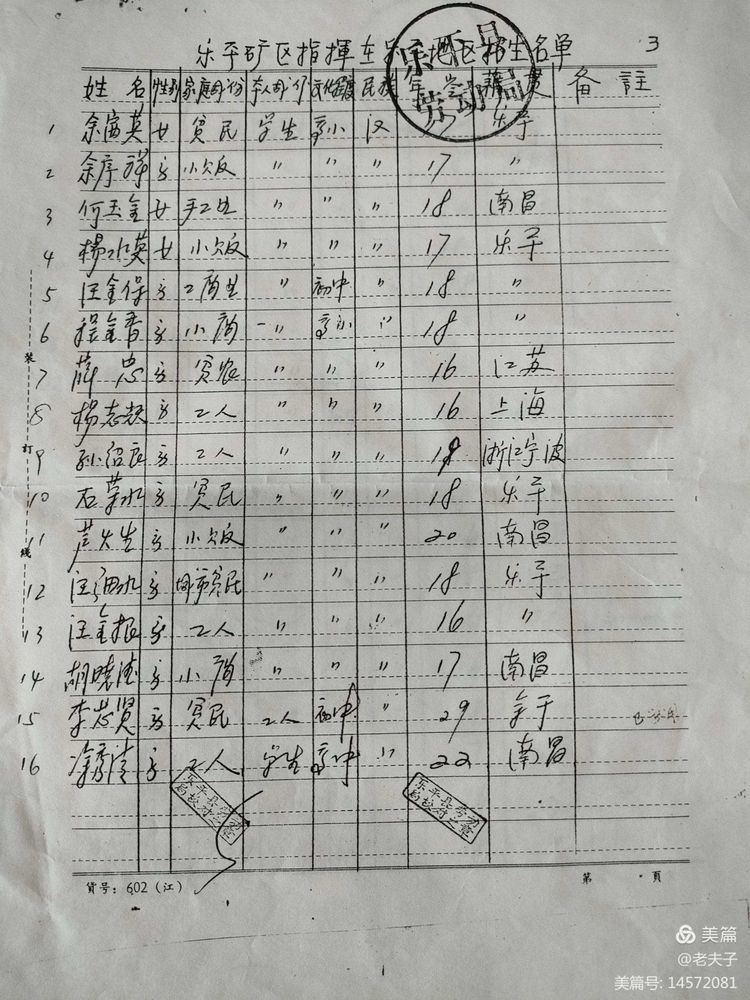 乐平矿区指揮在 地区招生名单 3
乐平县
劳动局
姓名 性别 家庭成份 本人成分 文化程度 民族 年 籍貫 备註
1 余富英 女 贫民 学生 高小 汉 乐平
2 余序祥 男 小贩 〃 〃 〃 17 〃
3 何玉金 女 手工业 〃 〃 〃 18 南昌
4 楊水英 女 小贩 〃 〃 〃 17 乐平
5 汪金保 男 工商业 〃 初中 〃 18 〃
6 程金香 男 小商 〃 高小 〃 18 〃
7 薛忠 男 贫农 〃 〃 〃 16 江苏
8 楊志 男 工人 〃 〃 〃 16 上海
9 孙绍良 男 工人 〃 〃 〃 19 浙江宁波
10 石荣水 男 贫民 〃 〃 〃 18 乐平
11 芦火生 男 小贩 〃 〃 〃 20 南昌
12 汪 水 男 城市贫民 〃 〃 〃 18 乐平
13 汪金根 男 工人 〃 〃 〃 16 〃
14 胡曉 男 小商 〃 〃 〃 17 南昌
15 李芯贤 男 贫民 工人 初中 〃 29 余干
16 涂 清 男 工人 学生 高中 〃 22 南昌
装
訂
线
乐平县劳动
局校对之章
乐平县劳动
局校对之章
貨号：602（江） 第 頁
美篇
@老夫子
美篇号: 14572081